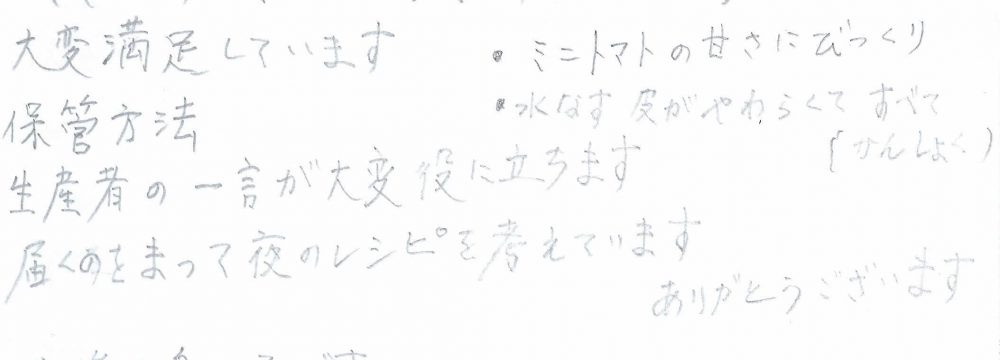 大変満足しています
・ミニトマトの甘さにびっくり
・水なす 皮がやわらくて すべて
(かんしょく)
保管方法
生産者の一言が大変役に立ちます
届くのをまって夜のレシピを考えています
ありがとうございます